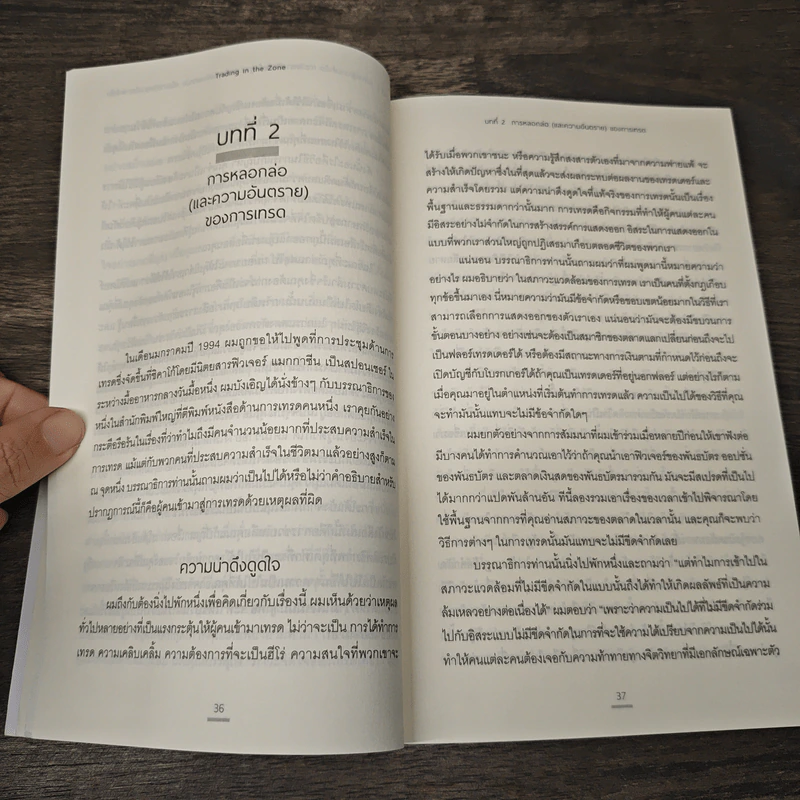 Trading in the Zone
บทที่ 2
การหลอกล่อ
(และความอันตราย)
ของการเทรด
ในเดือนมกราคมปี 1994 ผมถูกขอให้ไปพูดที่การประชุมด้านการ
เทรดซึ่งจัดขึ้นที่ชิคาโก้โดยมีนิตยสารฟิวเจอร์ แมกกาซีน เป็นสปอนเซอร์ ใน
ระหว่างมื้ออาหารกลางวันมื้อหนึ่ง ผมบังเอิญได้นั่งข้างๆ กับบรรณาธิการของ
หนึ่งในสำนักพิมพ์ใหญ่ที่ตีพิมพ์หนังสือด้านการเทรดคนหนึ่ง เราคุยกันอย่าง
กระตือรือร้นในเรื่องที่ว่าทำไมถึงมีคนจำนวนน้อยมากที่ประสบความสำเร็จใน
การเทรด แม้แต่กับพวกคนที่ประสบความสำเร็จในชีวิตมาแล้วอย่างสูงก็ตาม
ณ จุดหนึ่ง บรรณาธิการท่านนั้นถามผมว่าเป็นไปได้หรือไม่ว่าคำอธิบายสำหรับ
ปรากฏการณ์นี้ก็คือผู้คนเข้ามาสู่การเทรดด้วยเหตุผลที่ผิด
ความน่าดึงดูดใจ
ผมถึงกับต้องนิ่งไปพักหนึ่งเพื่อคิดเกี่ยวกับเรื่องนี้ ผมเห็นด้วยว่าเหตุผล
ทั่วไปหลายอย่างที่เป็นแรงกระตุ้นให้ผู้คนเข้ามาเทรด ไม่ว่าจะเป็น การได้ทำการ
เทรด ความเคลิบเคลิ้ม ความต้องการที่จะเป็นฮีโร่ ความสนใจที่พวกเขาจะ
36
บทที่ 2 การหลอกล่อ (และความอันตราย) ของการเทรด
ได้รับเมื่อพวกเขาชนะ หรือความรู้สึกสงสารตัวเองที่มาจากความพ่ายแพ้ จะ
สร้างให้เกิดปัญหาซึ่งในที่สุดแล้วจะส่งผลกระทบต่อผลงานของเทรดเดอร์และ
ความสำเร็จโดยรวม แต่ความน่าดึงดูดใจที่แท้จริงของการเทรดนั้นเป็นเรื่อง
พื้นฐานและธรรมดากว่านั้นมาก การเทรดคือกิจกรรมที่ทำให้ผู้คนแต่ละคน
มีอิสระอย่างไม่จำกัดในการสร้างสรรค์การแสดงออก อิสระในการแสดงออกใน
แบบที่พวกเราส่วนใหญ่ถูกปฏิเสธมาเกือบตลอดชีวิตของพวกเรา
แน่นอน บรรณาธิการท่านนั้นถามผมว่าที่ผมพูดมานี้หมายความว่า
อย่างไร ผมอธิบายว่า ในสภาวะแวดล้อมของการเทรด เราเป็นคนที่ตั้งกฎเกือบ
ทุกข้อขึ้นมาเอง นี่หมายความว่ามันมีข้อจำกัดหรือขอบเขตน้อยมากในวิธีที่เรา
สามารถเลือกการแสดงออกของตัวเราเอง แน่นอนว่ามันจะต้องมีขบวนการ
ขั้นตอนบางอย่าง อย่างเช่นจะต้องเป็นสมาชิกของตลาดแลกเปลี่ยนก่อนถึงจะไป
เป็นฟลอร์เทรดเดอร์ได้ หรือต้องมีสถานะทางการเงินตามที่กำหนดไว้ก่อนถึงจะ
เปิดบัญชีกับโบรกเกอร์ได้ถ้าคุณเป็นเทรดเดอร์ที่อยู่นอกฟลอร์ แต่อย่างไรก็ตาม
เมื่อคุณมาอยู่ในตำแหน่งที่เริ่มต้นทำการเทรดแล้ว ความเป็นไปได้ของวิธีที่คุณ
จะทำมันนั้นแทบจะไม่มีข้อจำกัดใดๆ
ผมยกตัวอย่างจากการสัมมนาที่ผมเข้าร่วมเมื่อหลายปีก่อนให้เขาฟังต่อ
มีบางคนได้ทำการคำนวณเอาไว้ว่าถ้าคุณนำเอาฟิวเจอร์ของพันธบัตร ออปชัน
ของพันธบัตร และตลาดเงินสดของพันธบัตรมารวมกัน มันจะมีสเปรดที่เป็นไป
ได้มากกว่าแปดพันล้านอัน ทีนี้ลองรวมเอาเรื่องของเวลาเข้าไปพิจารณาโดย
ใช้พื้นฐานจากการที่คุณอ่านสภาวะของตลาดในเวลานั้น และคุณก็จะพบว่า
วิธีการต่างๆ ในการเทรดนั้นมันแทบจะไม่มีขีดจำกัดเลย
บรรณาธิการท่านนั้นนิ่งไปพักหนึ่งและถามว่า "แต่ทำไมการเข้าไปใน
สภาวะแวดล้อมที่ไม่มีขีดจำกัดในแบบนั้นถึงได้ทำให้เกิดผลลัพธ์ที่เป็นความ
ล้มเหลวอย่างต่อเนื่องได้" ผมตอบว่า "เพราะว่าความเป็นไปได้ที่ไม่มีขีดจำกัดร่วม
ไปกับอิสระแบบไม่มีขีดจำกัดในการที่จะใช้ความได้เปรียบจากความเป็นไปได้นั้น
ทำให้คนแต่ละคนต้องเจอกับความท้าทายทางจิตวิทยาที่มีเอกลักษณ์เฉพาะตัว
37